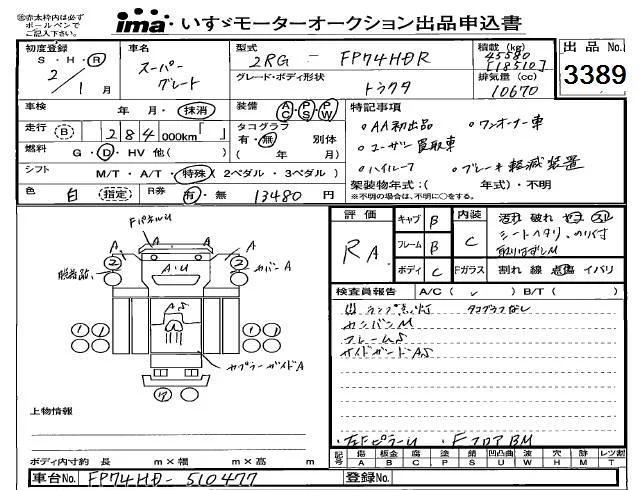 ㊟赤太枠内は必ず
ボールペンで
ご記入下さい。
ima いすゞモーターオークション出品申込書
初度登録 S・H・R 2/1月
車名 スーパーグレート
型式 2RG - FP74HDR
積載(kg) 45580 [18510]
出品No. 3389
グレード・ボディ形状 トラクタ
排気量(cc) 10670
車検 年・月・抹消
装備 AC PS PW
特記事項
走行 (B) 284 000km「 」
タコグラフ 有・無 別体 ( 年 月)
・AA初出品 ・ワンオーナー車
・ユーザー買取車
燃料 G・D・HV 他( )
・ハイルーフ ・ブレーキ軽減装置
シフト M/T・A/T・特殊(2ペダル・3ペダル)
架装物年式:( 年式)・不明
※不明の場合は、不明に○をする。
色 白 (指定) R券 有・無 13480 円
評価 RA
キャブ B
フレーム B
ボディ C
内装 C
Fガラス 割れ 線 点傷 イバリ
シートヘタリ、のり付
取りはずしM
FパネルU
A
A
A
2
2
AU
カバーA
AS
1 1
1 1
カプラーガイドA
17
検査員報告 A/C( ✓ ) B/T( )
ランプ点灯 タコグラフなし
カンバンM
フレームS
サイドガードAS
上物情報
FフロアBM
ボディ内寸約 長 m×幅 m×高 m
記号 傷 A 板金 B 腐 C 塗 P 錆 S 凹凸曲 U 波 W 穴 H 跡 M レツ割 T
車台No. FP74HD-510477
登録No.